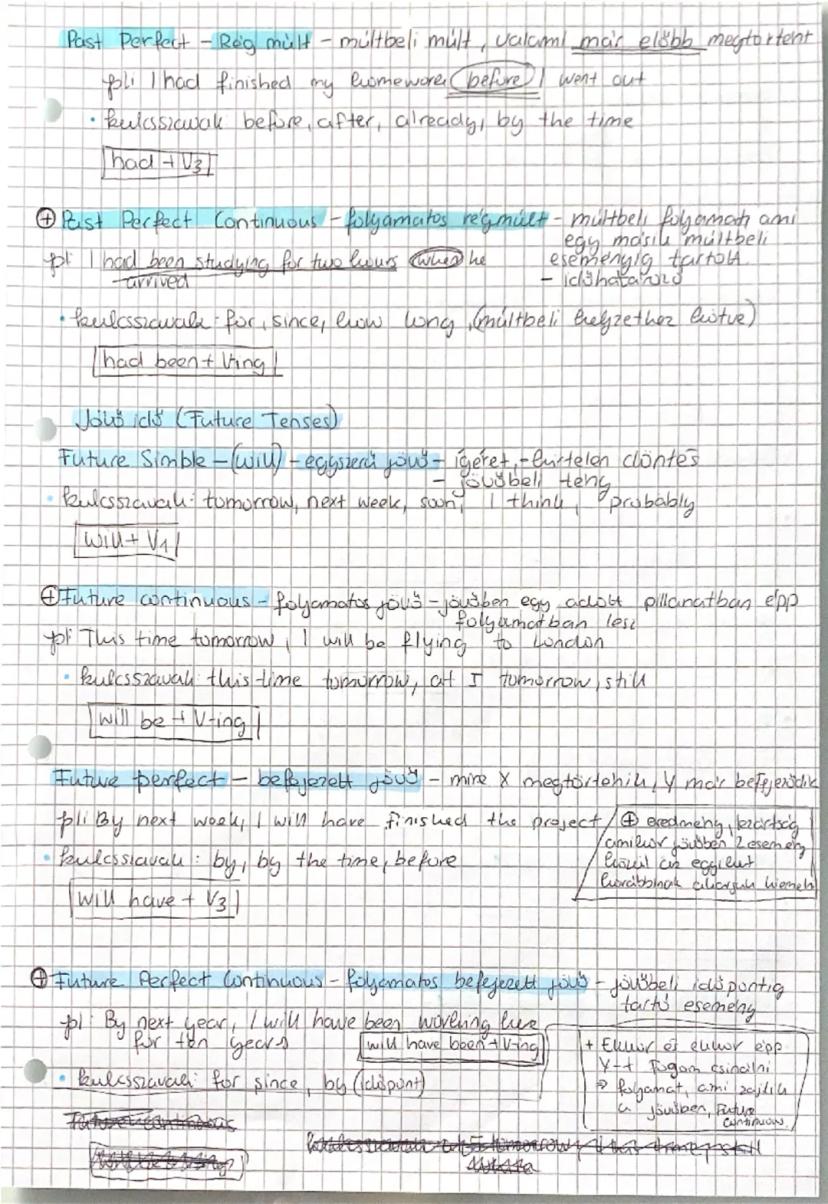 Past Perfect - Rég múlt - múltbeli múlt, valami már előbb megtörtént
pl: I had finished my homework before I went out
• kulcsszavak before, after, already, by the time
had + V3
+ Past Perfect Continuous - folyamatos régmúlt - múltbeli folyamat, ami
egy másik múltbeli
pl: I had been studying for two hours when he eseményig tartott
arrived - időhatározó
• kulcsszavak: for, since, how long, (múltbeli helyzethez kötve)
had been + Ving
Jövő idő (Future Tenses)
Future Simple - (will) - egyszerű jövő - ígéret, - hirtelen döntés
- jövőbeli tény
• kulcsszavak: tomorrow, next week, soon, I think, probably
will + V1
+ Future continuous - folyamatos jövő - jövőben egy adott pillanatban épp
folyamatban lesz
pl: This time tomorrow, I will be flying to London
• kulcsszavak this time tomorrow, at 5 tomorrow, still
will be + V-ing
Future perfect - befejezett jövő - mire X megtörténik, Y már befejeződik
pl: By next week, I will have finished the project
+ eredmény, lezártság
amikor jövőben 2 esemény
közül az egyiket
korábbinak akarjuk kiemelni
• kulcsszavak: by, by the time, before
will have + V3
+ Future Perfect Continuous - folyamatos befejezett jövő - jövőbeli időpontig
tartó esemény
pl: By next year, I will have been working here
for ten years
will have been + V-ing
• kulcsszavak: for since, by (időpont)
+ Ekkor és ekkor épp
Y-t fogom csinálni
→ folyamat, ami zajlik
a jövőben, Future
continuous
Future continuous